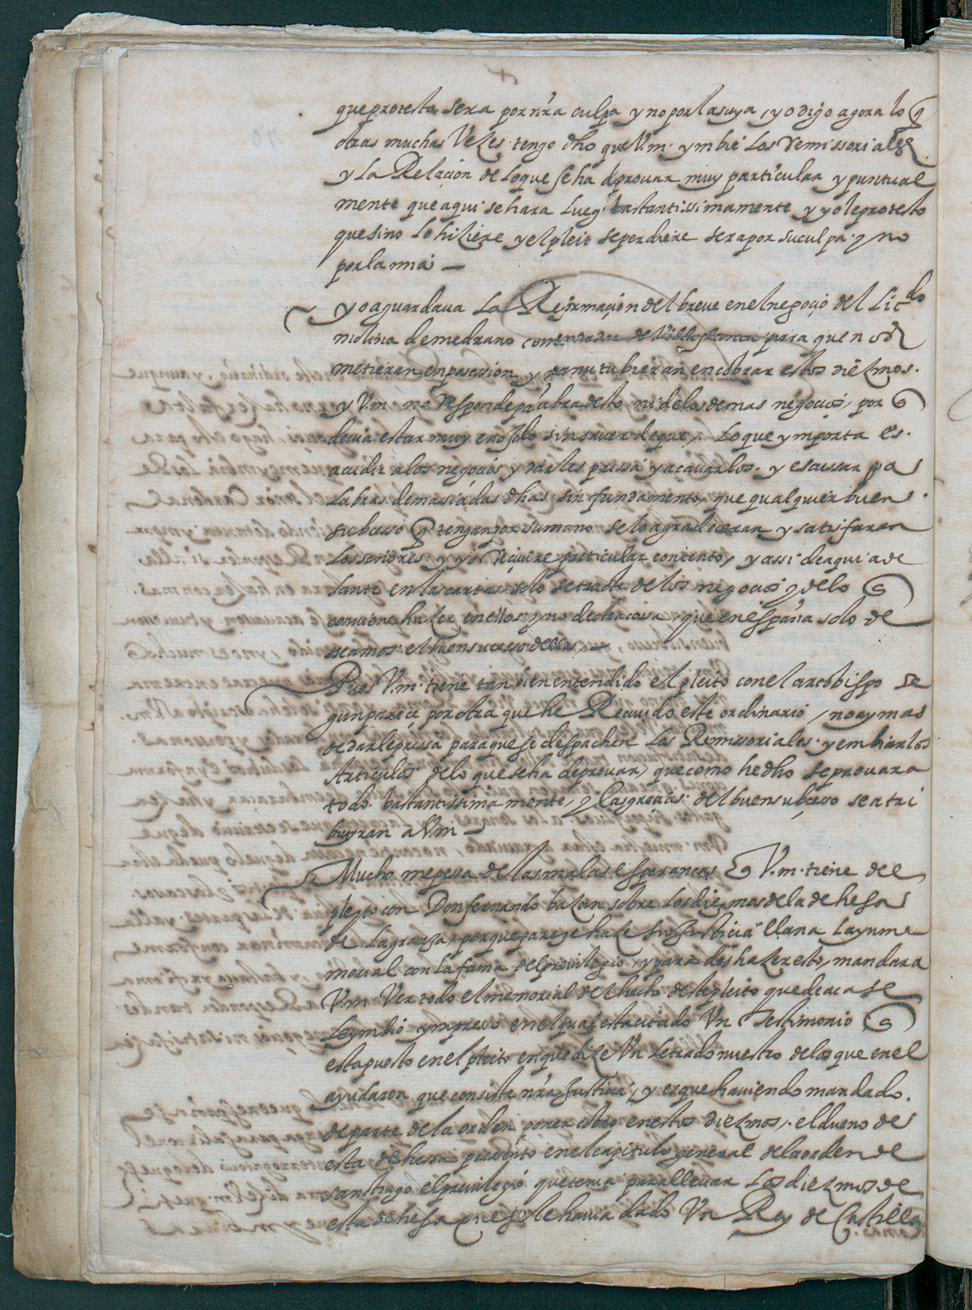 que protesta sera por nr̃a culpa y no por la suya, yo digo agora lo q
otras muchas Vezes tengo dho que Vm. ymbie los remissoriales
y la Relacion de lo que se ha d provar muy particular y puntual
mente que aqui se hara luego bastantissimamente y yo le protesto
que si no lo hiziere y el pleito se perdiere sera por su culpa y no
por la mia
yo aguardava la Reformacion del breve en el negocio del Licdo
molina de medrano para que nos
metieran en posesion y
y Vm. no responde palabra desto ni de los demas negocios, por q
devia estar muy enojado sin saver de que, lo que ymporta es.
acudir a los negocios y darles prissa y acavarlos. y escussar pa
labras demasiadas dhas sin fundamento, que qualquier buen
subcesso q tengan por su mano se lo agradeceran y satisfaran
los señores y yo recivire particular contento, y assi de aqui ade
lante en las cartas solo se trate de los negocios y de lo q
conviene hazer en ellos y no de otra cosa, que en españa solo de
seamos el buen sucesso dellos
Pues Vm. tiene tan bien entendido el pleito con el arcobispo se
gun parece por otra que he Recivido este ordinario, no ay mas
de darle prissa para que se despachen los Remissoriales y embiarlos
Articulos de lo que se ha de provar, que como he dho se provara
todo bastantissimamente, y las gracias del buen subcesso se atri
buyran a Vm
Mucho me pessa de las malas esperanças q Vm. tiene del
pleyto con Don fernando baçan sobre los diezmos de la dehesa
de la granja, porque parece haze su Justicia llana la ynme
morial con la fama del previlegio, y para deshazer esto, mandara
Vm Ver todo el memorial del hecho deste pleito que de aca se
le ymbio ympreso en el qual esta citado Vn testimonio q
esta puesto en el pleito en que dize Vn Letrado nuestro de los que en el
ayudaron que consiste nr̃a Justicia, y es que haviendo mandado.
de parte de la orden poner cobro en estos diezmos, el dueno de
esta dehesa presento en el capitulo general de la orden de
santiago el previlegio que tenia para llevar los diezmos de
esta dehesa que se le havia dado Vn Rey de Castilla